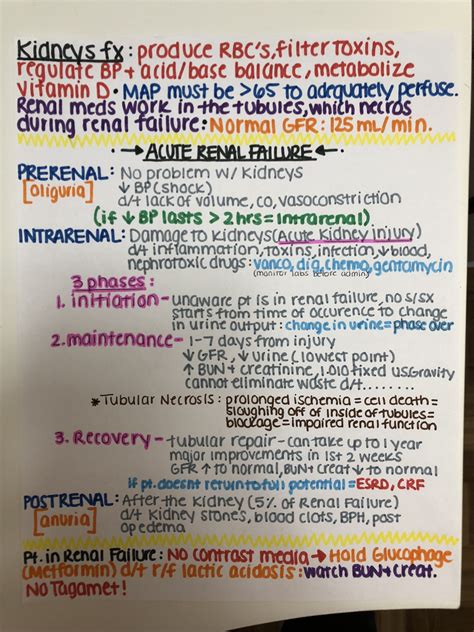 Kidneys fx: produce RBC's, filter toxins,
regulate BP + acid/base balance, metabolize
vitamin D • MAP must be >65 to adequately perfuse.
Renal meds work in the tubules, which necros
during renal failure: Normal GFR: 125 mL/min.
ACUTE RENAL FAILURE
PRERENAL: No problem w/ Kidneys
[oliguria] ↓ BP (shock)
d/t lack of volume, CO, vasoconstriction
(if ↓ BP lasts > 2 hrs = intrarenal)
INTRARENAL: Damage to Kidneys (Acute Kidney injury)
d/t inflammation, toxins, infection, ↓ blood,
nephrotoxic drugs: vanco, dig, chemo, gentamycin
(monitor labs before admin)
3 phases:
1. initiation - unaware pt is in renal failure, no s/sx
starts from time of occurence to change
in urine output: change in urine = phase over
2. maintenance - 1-7 days from injury
↓ GFR, ↓ urine (lowest point)
↑ BUN + creatinine, 1.010 fixed us.Gravity
cannot eliminate waste d/t........
*Tubular Necrosis: prolonged ischemia = cell death =
sloughing off of inside of tubules =
blockage = impaired renal function
3. Recovery - tubular repair - can take up to 1 year
major improvements in 1st 2 weeks
GFR ↑ to normal, BUN + creat ↓ to normal
if pt. doesnt return to full potential = ESRD, CRF
POSTRENAL: After the Kidney (5% of Renal Failure)
[anuria] d/t Kidney stones, blood clots, BPH, post
op edema
Pt. in Renal Failure: NO contrast media → Hold Glucophage
(Metformin) d/t r/f lactic acidosis: watch BUN + creat.
NO Tagamet!